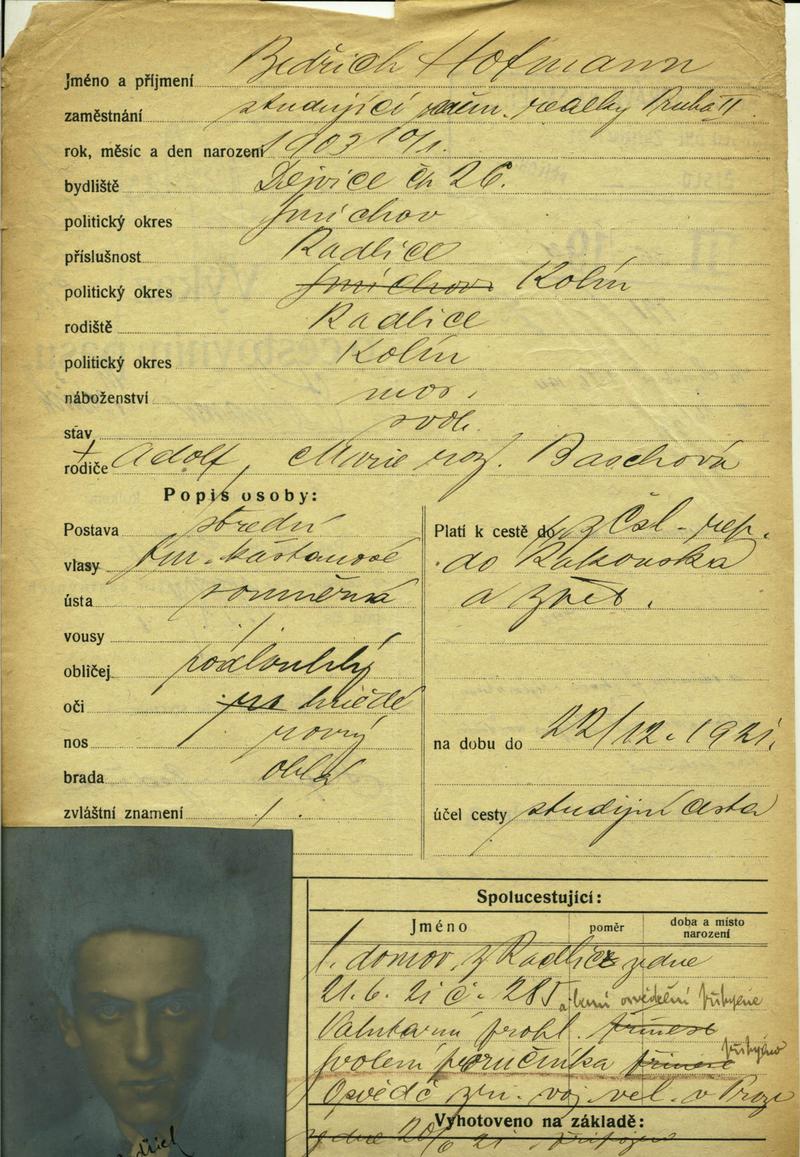 Jméno a příjmení Bedřich Hofmann
zaměstnání studující něm. realky Praha II
rok, měsíc a den narození 1903 10/1.
bydliště Dejvice čp 26.
politický okres Smíchov
příslušnost Radlice
politický okres Smíchov Kolín
rodiště Radlice
politický okres Kolín
náboženství mos.
stav svob.
rodiče Adolf, Marie roz. Baschová
Popis osoby:
Postava střední
vlasy tm. kaštanové
ústa souměrná
vousy /
obličej podlouhlý
oči hnědé
nos rovný
brada oblá
zvláštní znamení /.
Platí k cestě do z Čsl-rep.
do Rakouska
a zpět.
na dobu do 22/12. 1921.
účel cesty studijní cesta
Spolucestující:
Jméno poměr doba a místo narození
1. domov. z Radlic ze dne
21.6.21 č. 285
Valutární prohl. přinese
Svolení poručníka přinese
Osvědč. voj. vel. v Praze
Vyhotoveno na základě:
ze dne 20/6 21